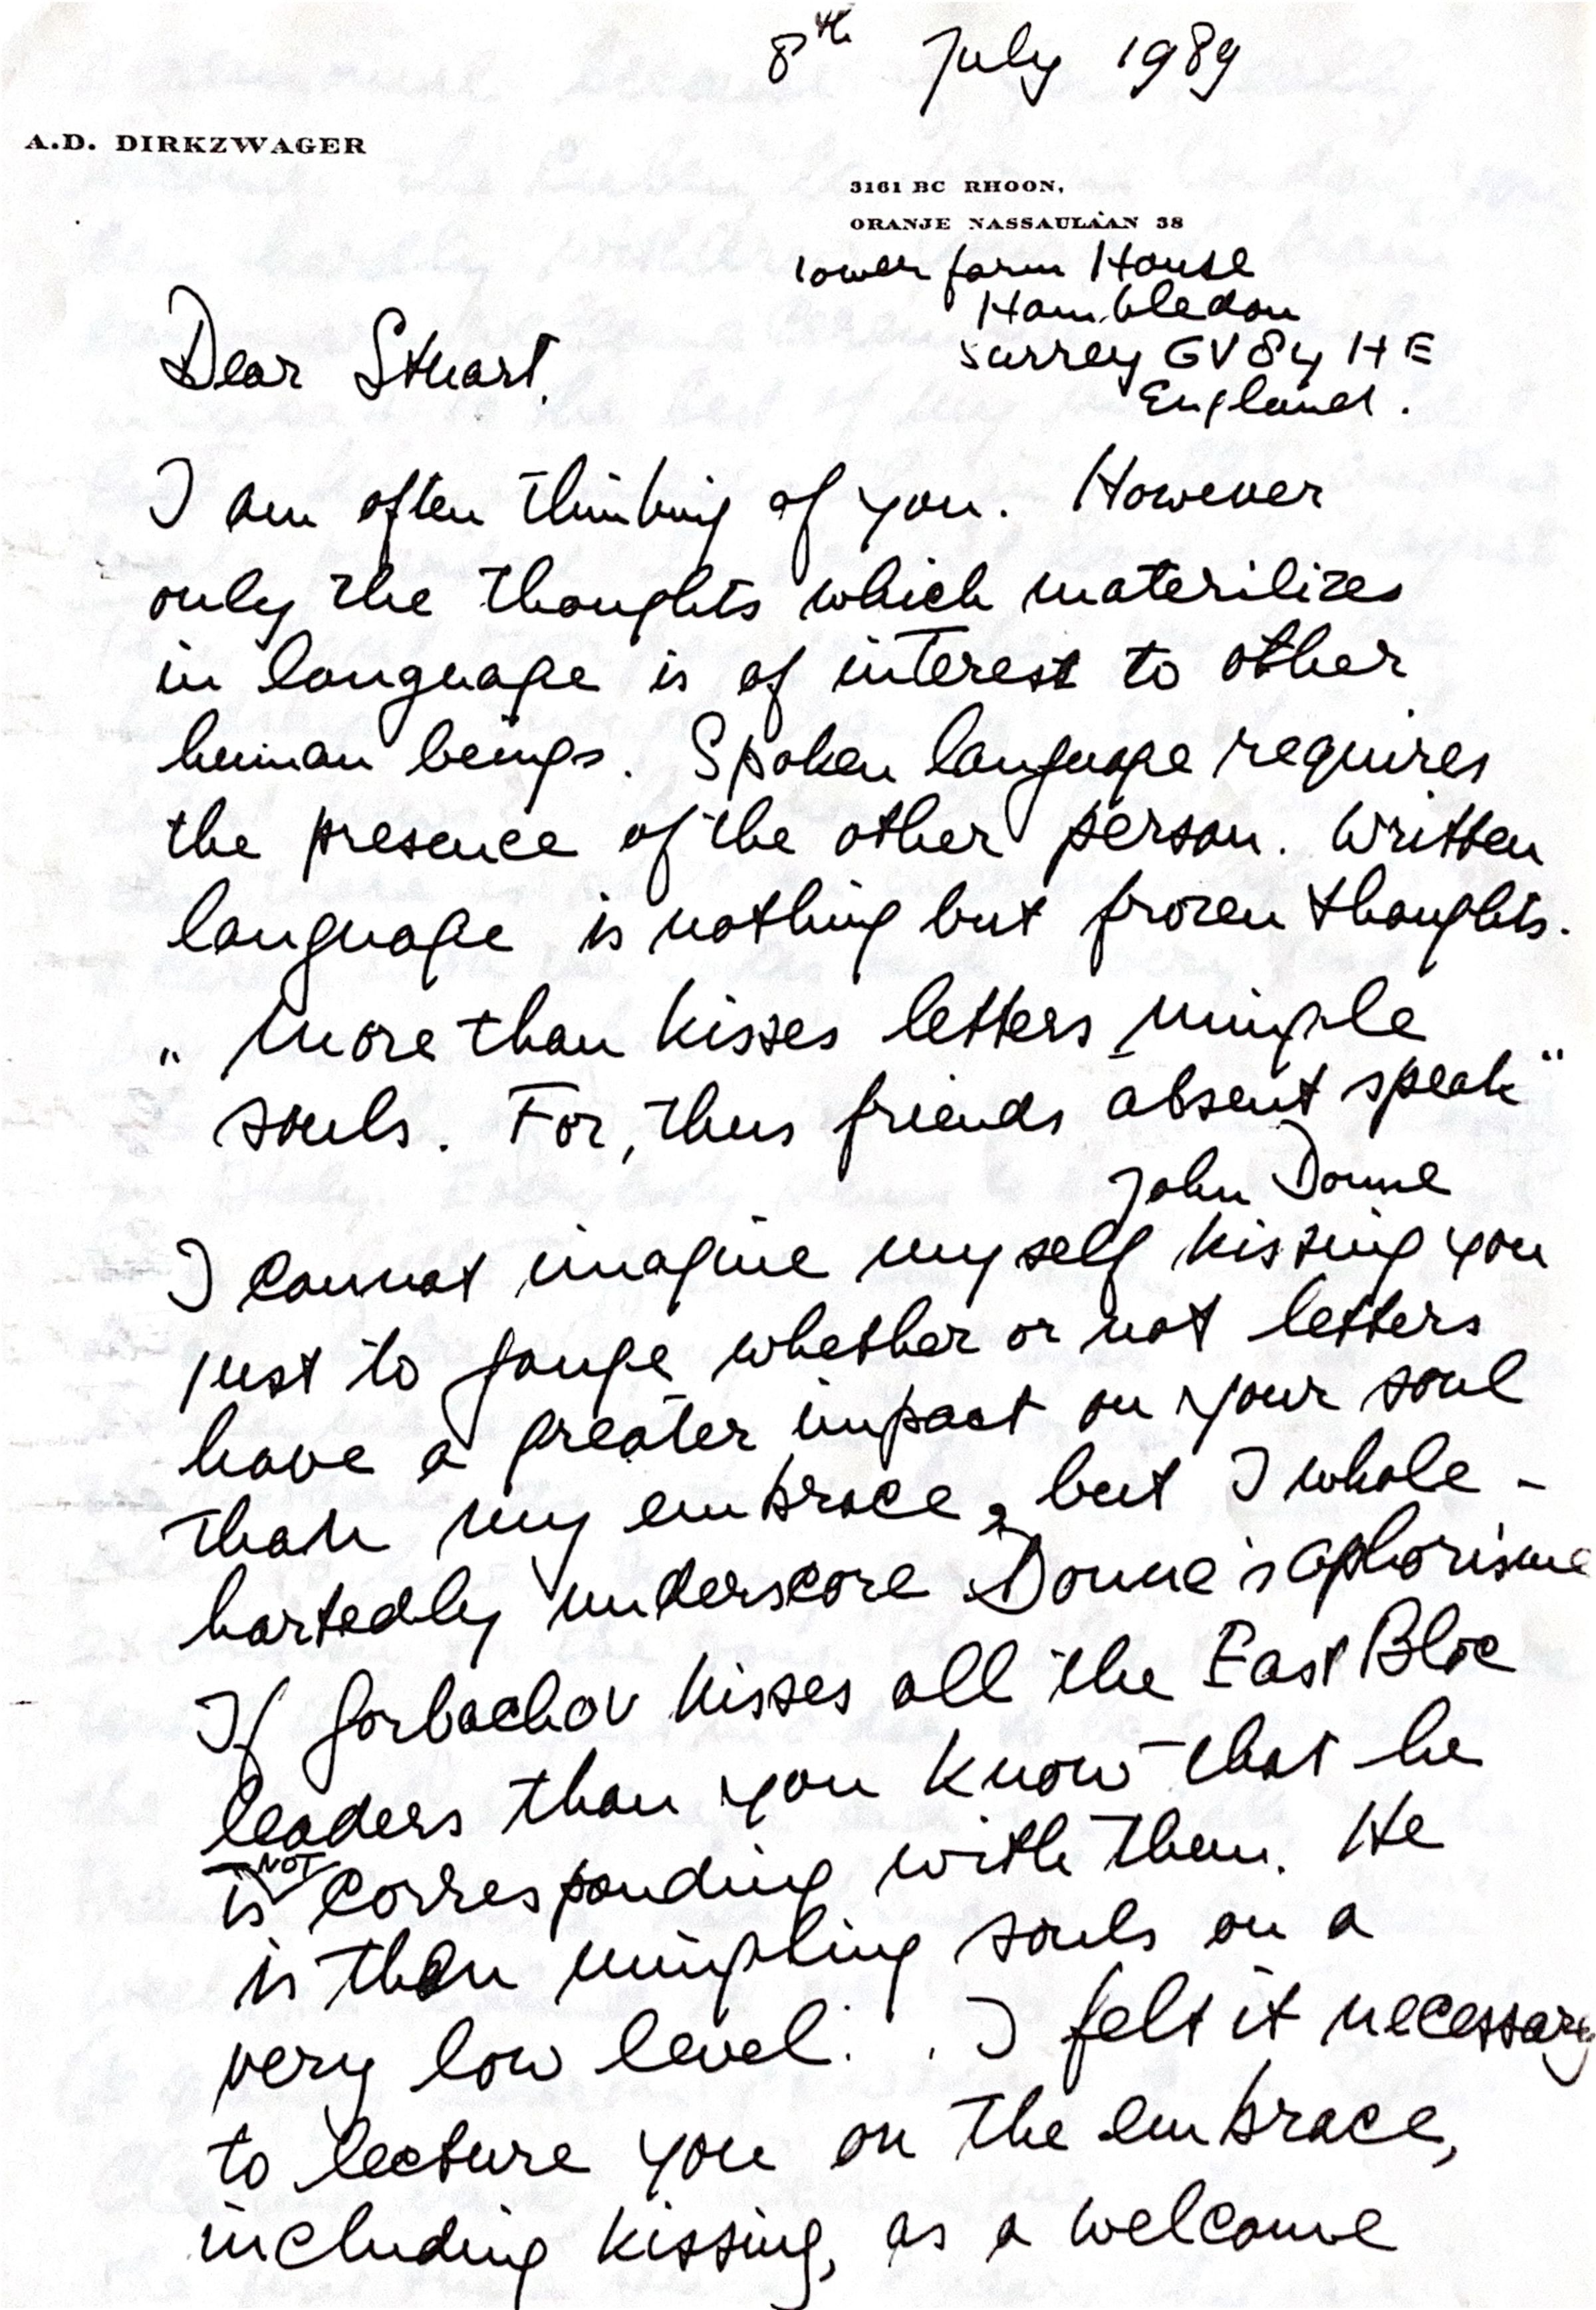 8th July 1989
A.D. DIRKZWAGER
3161 BC RHOON,
ORANJE NASSAULAAN 38
Lower farm House
Hambledon
Surrey GV84 HE
England.
Dear Stuart,
I am often thinking of you. However
only the thoughts which materilizes
in language is of interest to other
human beings. Spoken language requires
the presence of the other person. Written
language is nothing but frozen thoughts.
„ More than kisses letters mingle
souls. For, thus friends absent speak"
John Donne
I cannot imagine myself kissing you
just to gauge whether or not letters
have a greater impact on your soul
than my embrace, but I whole-
hartedly underscore Donne's aphorisme
If Gorbachov kisses all the East Bloc
leaders than you know that he
is NOT corresponding with them. He
is then mingling souls on a
very low level. . I felt it necessary
to lecture you on the embrace,
including kissing, as a welcome